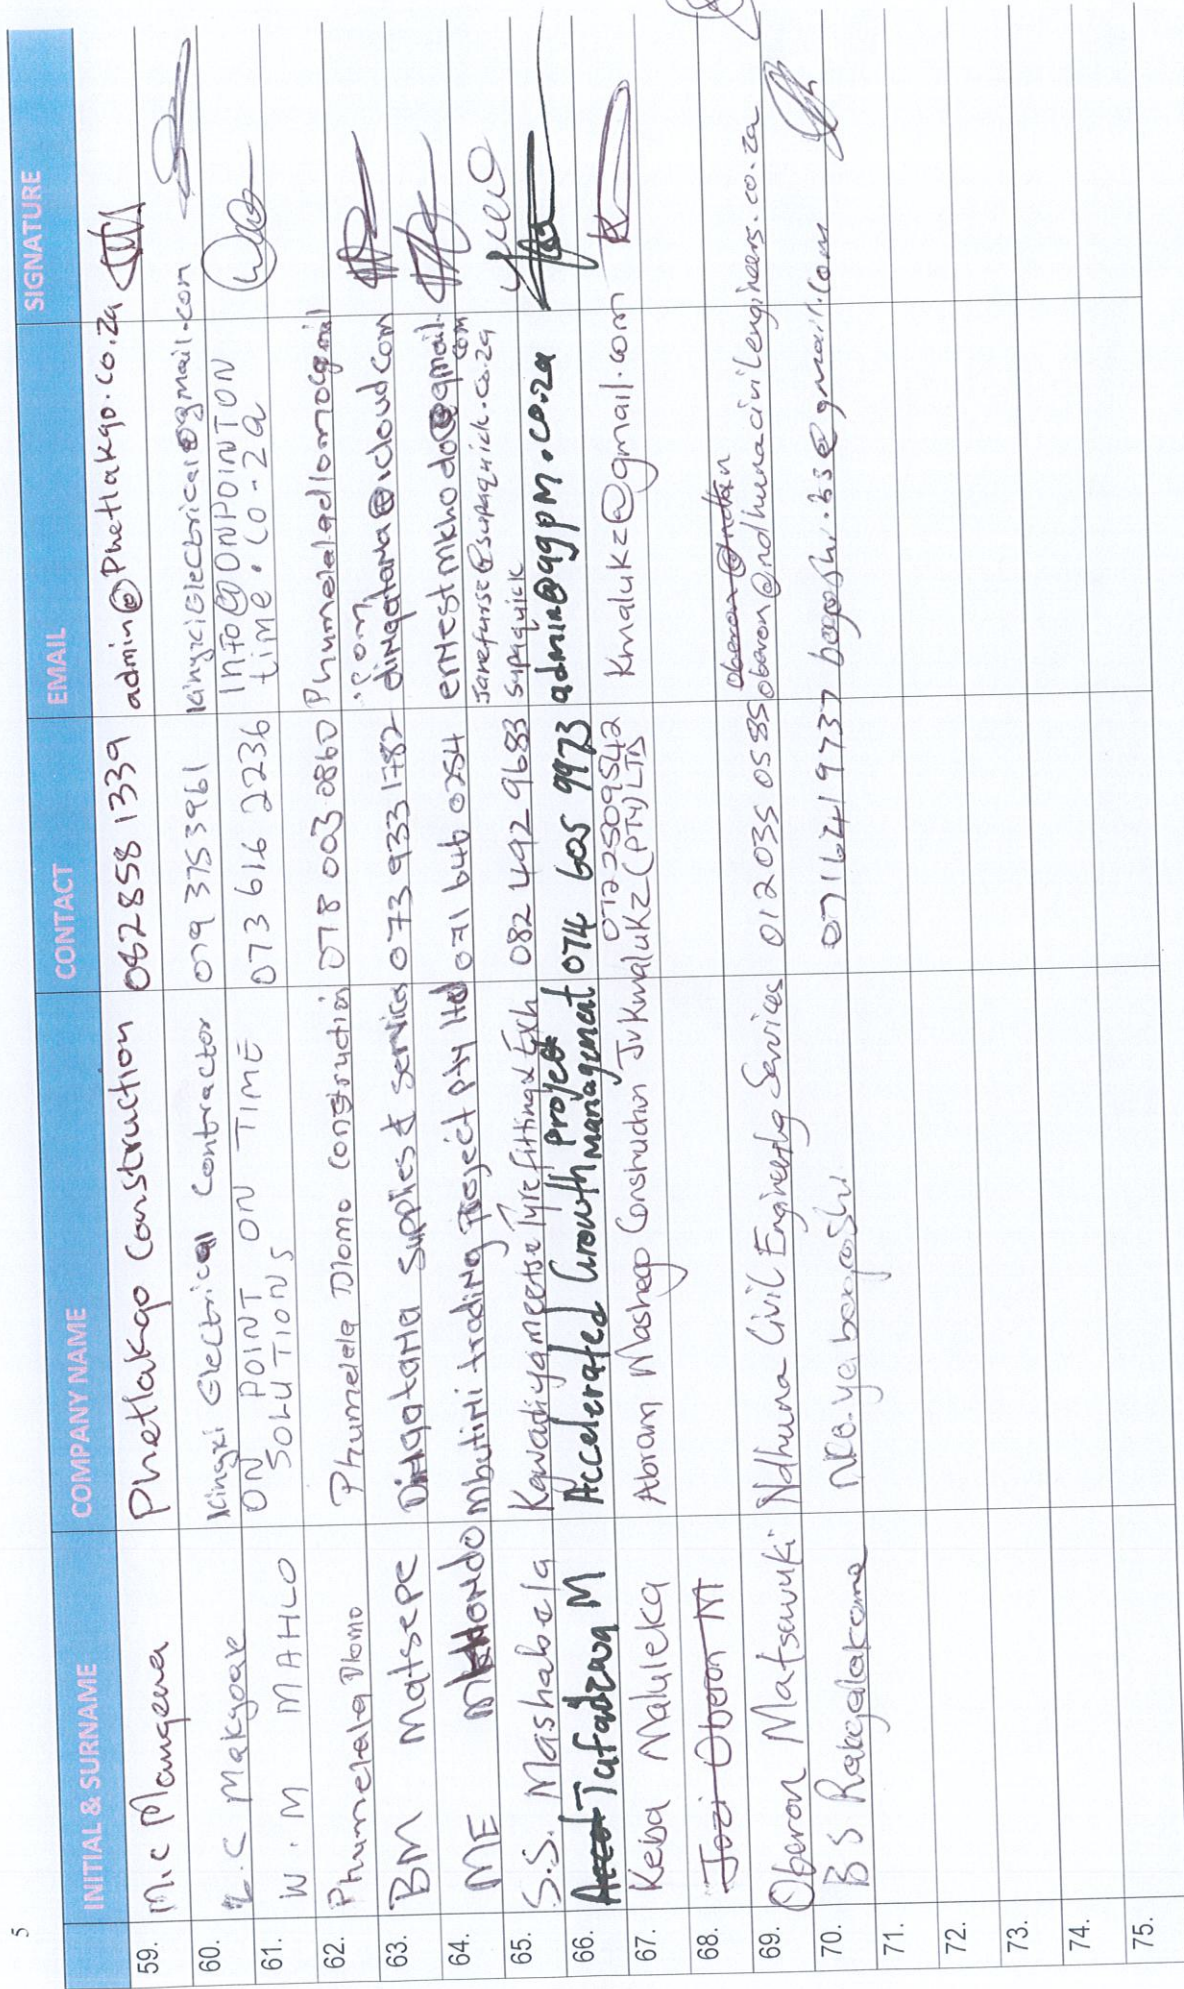 5
INITIAL & SURNAME COMPANY NAME CONTACT EMAIL SIGNATURE
59. M.C Mangena Phetlakgo Construction 062858 1339 admin@Phetlakgo.co.za
60. C Makgoae Kingxci Electrical Contractor 079 375 3961 KingxciElectrical@gmail.com
61. W.M MAHLO ON POINT ON TIME SOLUTIONS 073 616 2236 INFO@ONPOINTON time.co-za
62. Phumelela Dlomo Phumelela Dlomo Construction 078 003 0860 Phumelelagdlomo@gmail .com
63. BM Matsepe Dingatana Supplies & Services 073 933 1782 dingatana@icloud.com
64. ME Mkhondo Mbutini trading Project pty ltd 071 646 0254 ernestmkhondo@gmail. com
65. S.S. Mashabela Kgwadiyameetse Tyre fitting & Exh 082 492 9683 Janefurse@supaquick.co.za supaquick
66. Tafadzwa M Accelerated Growth Project Management 074 605 9973 admin@aggpm.co.za
67. Keba Maluleka Abram Mashego Construction JV Kmalukz (PTY) LTD 072 2509542 Kmalukz@gmail.com
68. Jozi Oberon M
69. Oberon Matsawuki Ndhuna Civil Engineering Services 012 035 0585 oberon@ndhunacivilengineers.co.za
70. B S Rakgalakane 071 641 9737
71.
72.
73.
74.
75.